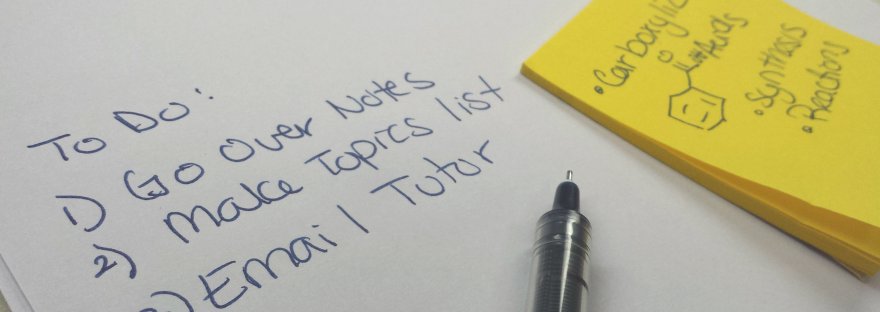 To Do:
1) Go Over Notes
2) Make Topics list
3) Email Tutor
• Carboxylic
Acids
• Synthesis
• Reactions